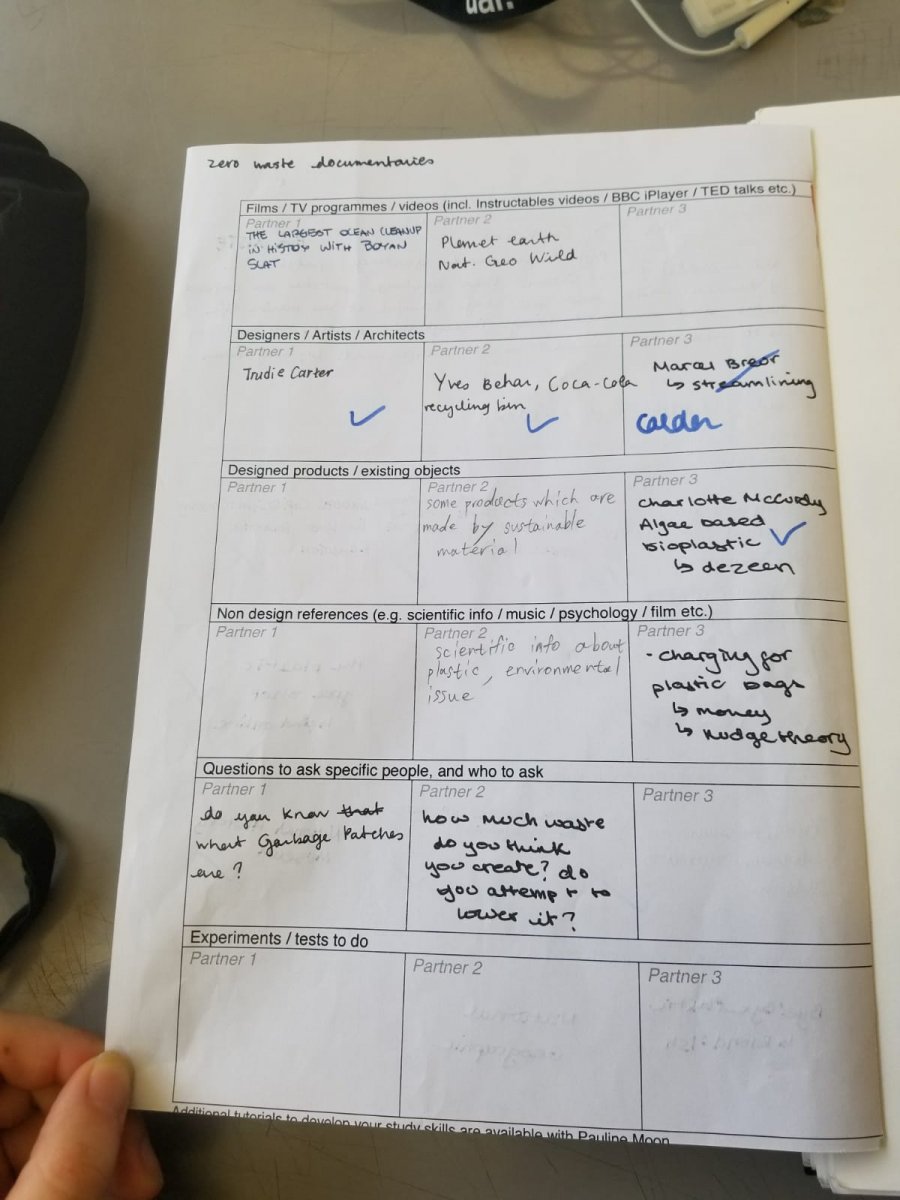 ual:
zero waste documentaries
Films / TV programmes / videos (incl. Instructables videos / BBC iPlayer / TED talks etc.)
Partner 1
THE LARGEST OCEAN CLEANUP
IN HISTOY WITH BOYAN
SLAT
Partner 2
Planet earth
Nat. Geo Wild
Partner 3
Designers / Artists / Architects
Partner 1
Trudie Carter
Partner 2
Yves Behar, Coca-Cola
recycling bin
Partner 3
Marcel Breor
↳ streamlining
Calder
Designed products / existing objects
Partner 1
Partner 2
some products which are
made by sustainable
material
Partner 3
Charlotte McCurdy
Algae based
bioplastic
↳ dezeen
Non design references (e.g. scientific info / music / psychology / film etc.)
Partner 1
Partner 2
scientific info about
plastic, environmental
issue
Partner 3
- charging for
plastic bags
↳ money
↳ nudge theory
Questions to ask specific people, and who to ask
Partner 1
do you know that
what Garbage Patches
are?
Partner 2
how much waste
do you think
you create? do
you attempt to
lower it?
Partner 3
Experiments / tests to do
Partner 1
Partner 2
Partner 3
Additional tutorials to develop your study skills are available with Pauline Moon